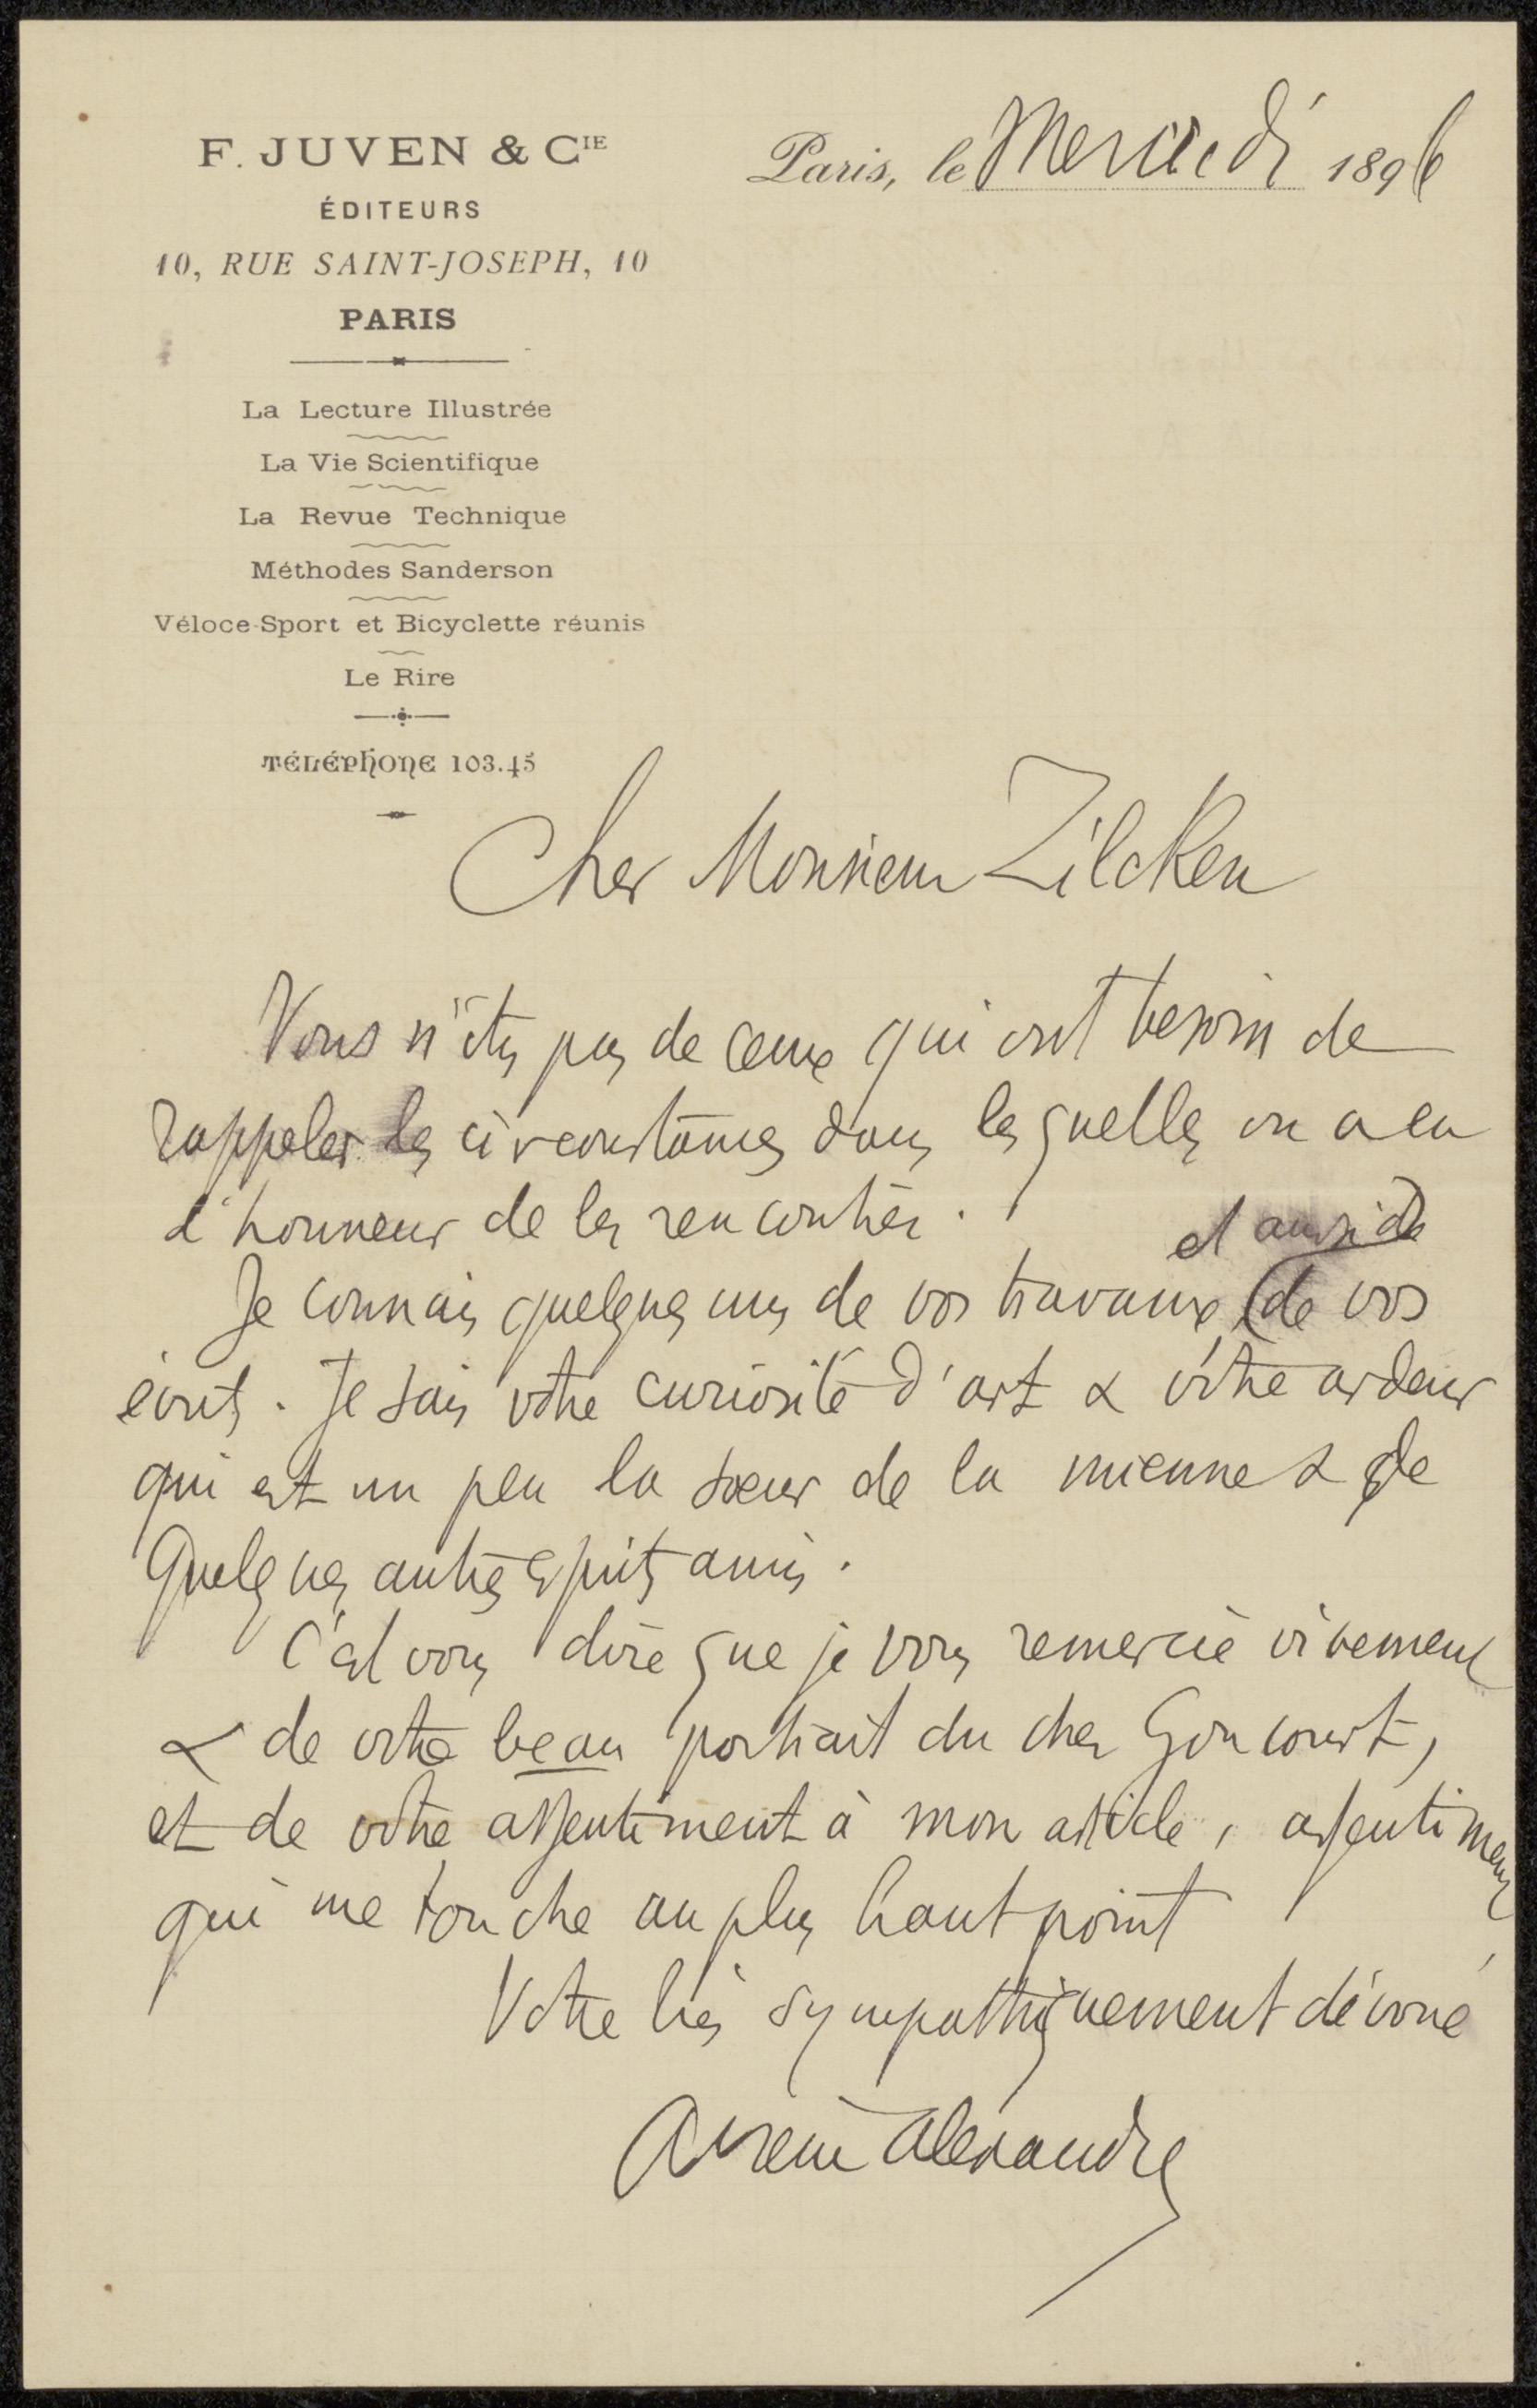 F. JUVEN & CIE
ÉDITEURS
10, RUE SAINT-JOSEPH, 10
PARIS
La Lecture Illustrée
La Vie Scientifique
La Revue Technique
Méthodes Sanderson
Véloce-Sport et Bicyclette réunis
Le Rire
TÉLÉPHONE 103.45
Paris, le Mercredi 1896
Cher Monsieur Zilcken
Vous n'êtes pas de ceux qui ont besoin de
rappeler les circonstances dans lesquelles on a eu
l'honneur de les rencontrer.
et aussi de
Je connais quelques uns de vos travaux (de vos
écrits. Je sais votre curiosité d'art & votre ardeur
qui est un peu la sœur de la mienne & de
quelques autres esprits amis.
C'est vous dire que je vous remercie vivement
& de votre beau portrait du cher Goncourt,
et de votre assentiment à mon article, assentiment
qui me touche au plus haut point
Votre très sympathiquement dévoué
Arsène Alexandre